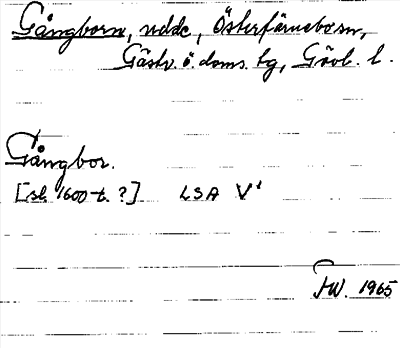 Gångborn, udde, Österfärnebo sn,
Gästr. ö. doms. tg, Gävl. l.
Gångbor.
[sl. 1600-t. ?] LSA V¹
HW. 1965